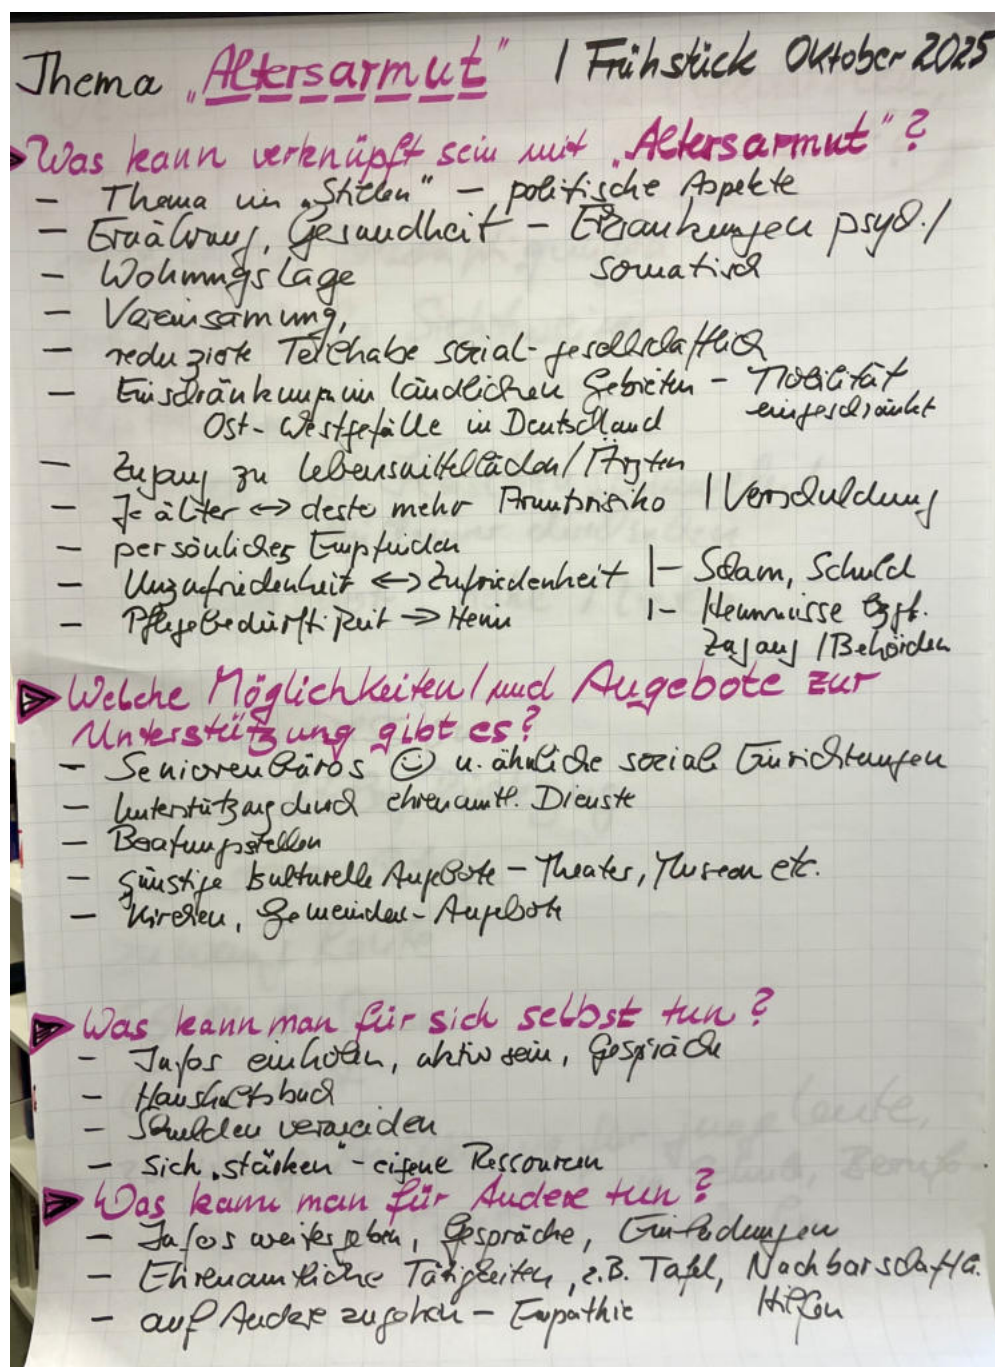 Thema „Altersarmut" / Frühstück Oktober 2025
Was kann verknüpft sein mit „Altersarmut"?
– Thema im „Stillen" – politische Aspekte
– Ernährung, Gesundheit – Erkrankungen psych. /
somatisch
– Wohnungslage
– Vereinsamung,
– reduzierte Teilhabe sozial-gesellschaftlich
– Einschränkungen in ländlichen Gebieten – Mobilität
eingeschränkt
Ost-Westgefälle in Deutschland
– Zugang zu Lebensmittelläden / Ärzten
– Je älter ↔ desto mehr Armutsrisiko / Verschuldung
– persönliches Empfinden
– Unzufriedenheit ↔ Zufriedenheit |– Scham, Schuld
– Pflegebedürftigkeit → Heim |– Hemmnisse bzgl.
Zugang / Behörden
Welche Möglichkeiten / und Angebote zur
Unterstützung gibt es?
– Seniorenbüros ☺ u. ähnliche soziale Einrichtungen
– Unterstützung durch ehrenamtl. Dienste
– Beratungsstellen
– günstige kulturelle Angebote – Theater, Museen etc.
– Kirchen, Gemeinden-Angebote
Was kann man für sich selbst tun?
– Infos einholen, aktiv sein, Gespräche
– Haushaltsbuch
– Schulden vermeiden
– Sich „stärken" – eigene Ressourcen
Was kann man für Andere tun?
– Infos weitergeben, Gespräche, Einladungen
– Ehrenamtliche Tätigkeiten, z.B. Tafel, Nachbarschaftl.
Hilfen
– auf Andere zugehen – Empathie